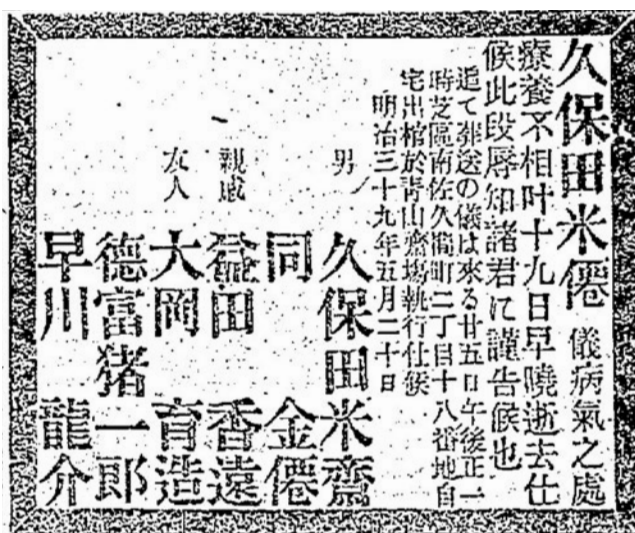 久保田米僊儀病氣之處
療養不相叶十九日早曉逝去仕
候此段辱知諸君に謹告候也
追て葬送の儀は來る廿五日午後正一
時芝區南佐久間町二丁目十八番地自
宅出棺於青山齋塲執行仕候
明治三十九年五月二十日
男 久保田米齋
同 金僊
親戚 益田香遠
友人 大岡育造
德富猪一郎
早川龍介